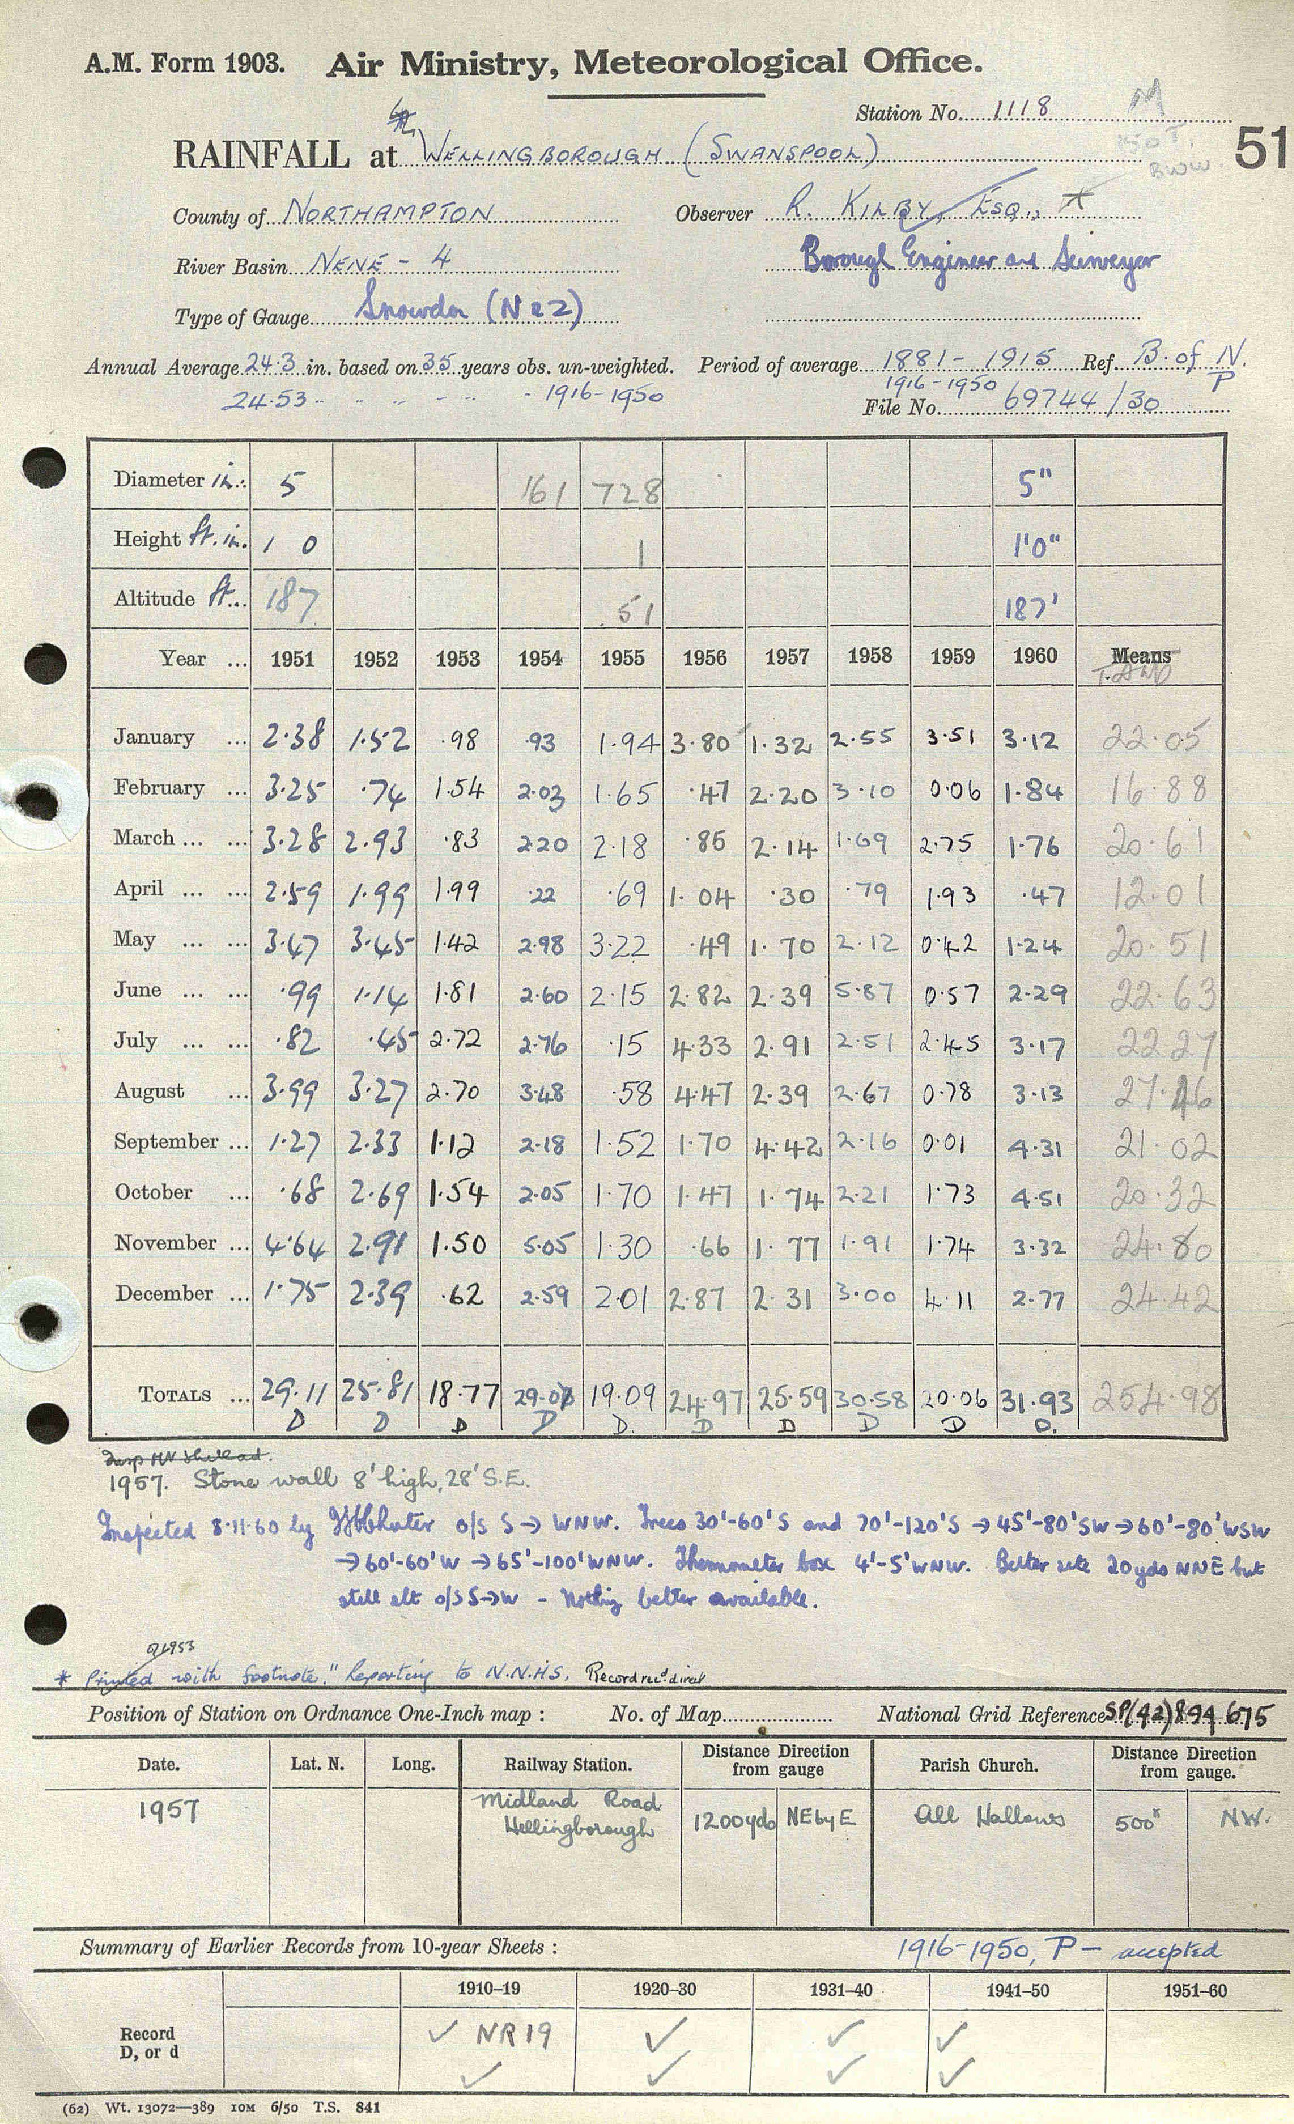 A.M. Form 1903. Air Ministry, Meteorological Office.
Station No. 1118 M
RAINFALL at WELLINGBOROUGH (SWANSPOOL) 51
BWW.
County of NORTHAMPTON Observer R. KILBY, ESQ., *
River Basin NENE - 4 Borough Engineer and Surveyor
Type of Gauge Snowdon (No 2)
Annual Average 24.3 in. based on 35 years obs. un-weighted. Period of average 1881 - 1915 Ref. B. of N.
24.53 " " " - " - 1916-1950 1916-1950 P
File No. 69744/30
Diameter in. 5 161 728 5"
Height ft. in. 1 0 1 1'0"
Altitude ft. 187 51 187'
Year ... 1951 1952 1953 1954 1955 1956 1957 1958 1959 1960 Means
January ... 2.38 1.52 .98 .93 1.94 3.80 1.32 2.55 3.51 3.12 22.05
February ... 3.25 .74 1.54 2.03 1.65 .47 2.20 3.10 0.06 1.84 16.88
March ... ... 3.28 2.93 .83 2.20 2.18 .85 2.14 1.69 2.75 1.76 20.61
April ... ... 2.59 1.99 1.99 .22 .69 1.04 .30 .79 1.93 .47 12.01
May ... ... 3.47 3.45 1.42 2.98 3.22 .49 1.70 2.12 0.42 1.24 20.51
June ... ... .99 1.14 1.81 2.60 2.15 2.82 2.39 5.87 0.57 2.29 22.63
July ... ... .82 .45 2.72 2.76 .15 4.33 2.91 2.51 2.45 3.17 22.27
August ... 3.99 3.27 2.70 3.48 .58 4.47 2.39 2.67 0.78 3.13 27.46
September ... 1.27 2.33 1.12 2.18 1.52 1.70 4.42 2.16 0.01 4.31 21.02
October ... .68 2.69 1.54 2.05 1.70 1.47 1.74 2.21 1.73 4.51 20.32
November ... 4.64 2.91 1.50 5.05 1.30 .66 1.77 1.91 1.74 3.32 24.80
December ... 1.75 2.39 .62 2.59 2.01 2.87 2.31 3.00 4.11 2.77 24.42
TOTALS ... 29.11 25.81 18.77 29.07 19.09 24.97 25.59 30.58 20.06 31.93 254.98
D D D D D. D D D D D.
1957. Stone wall 8' high, 28' S.E.
Inspected 8.11.60 by o/s S → WNW. Trees 30'-60'S and 70'-120'S → 45'-80'SW → 60'-80'WSW
→ 60'-60'W → 65'-100'WNW. Thermometer box 4'-5'WNW. Better site 20yds NNE but
still slt o/s S→W - Nothing better available.
1953
* Printed with footnote "Reporting to N.N.H.S. Record rec'd direct
Position of Station on Ordnance One-Inch map : No. of Map National Grid Reference SP(42)894 675
Date. Lat. N. Long. Railway Station. Distance Direction from gauge Parish Church. Distance Direction from gauge.
1957 Midland Road Wellingborough 1200yds NE by E All Hallows 500x NW.
Summary of Earlier Records from 10-year Sheets : 1916-1950, P - accepted
1910–19 1920–30 1931–40 1941–50 1951–60
Record
D, or d
✓ NR19 ✓ ✓ ✓
✓ ✓ ✓ ✓
(62) Wt. 13072—389 10M 6/50 T.S. 841